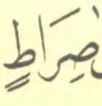 صِرَاطٍ